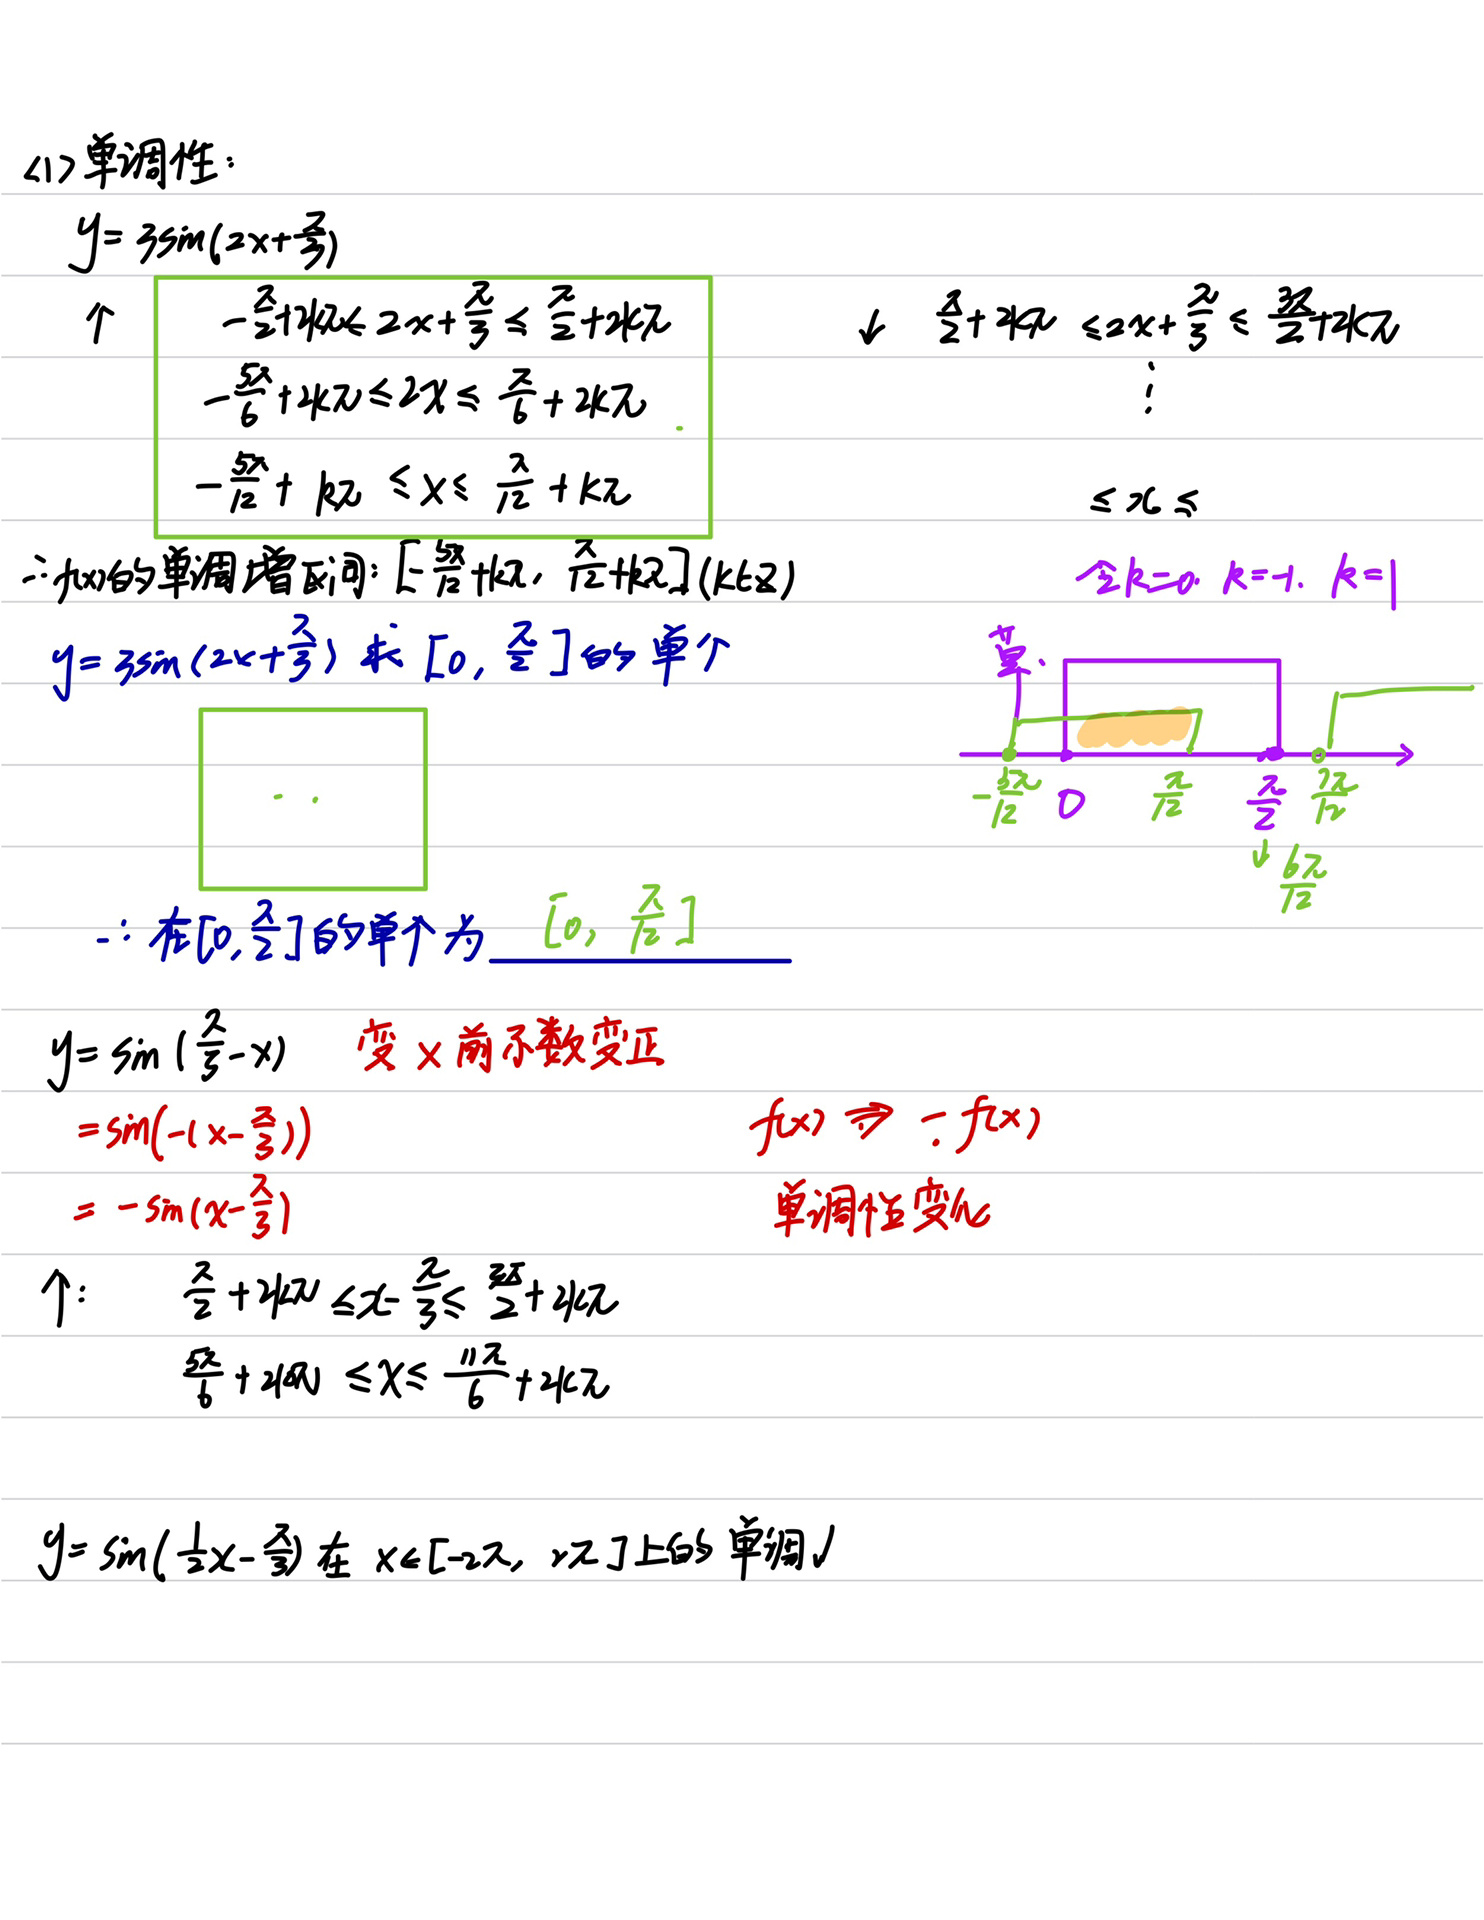 <1> 单调性:
y = 3sin(2x + π/3)
↑ -π/2 + 2kπ ≤ 2x + π/3 ≤ π/2 + 2kπ
-5π/6 + 2kπ ≤ 2x ≤ π/6 + 2kπ
-5π/12 + kπ ≤ x ≤ π/12 + kπ
↓ π/2 + 2kπ ≤ 2x + π/3 ≤ 3π/2 + 2kπ
⋮
≤ x ≤
∴ f(x)的单调增区间: [-5π/12 + kπ, π/12 + kπ] (k∈Z)
令k=0. k=-1. k=1
y = 3sin(2x + π/3) 求 [0, π/2] 的单个
草.
-5π/12 0 π/12 π/2 7π/12
↓ 6π/12
∴ 在[0, π/2]的单个为 [0, π/12]
y = sin(π/3 - x) 变 x 前示数变正
= sin(-(x - π/3))
= -sin(x - π/3)
f(x) ⇒ -f(x)
单调性变化
↑: π/2 + 2kπ ≤ x - π/3 ≤ 3π/2 + 2kπ
5π/6 + 2kπ ≤ x ≤ 11π/6 + 2kπ
y = sin(1/2x - π/3) 在 x∈[-2π, 2π]上的单调↓